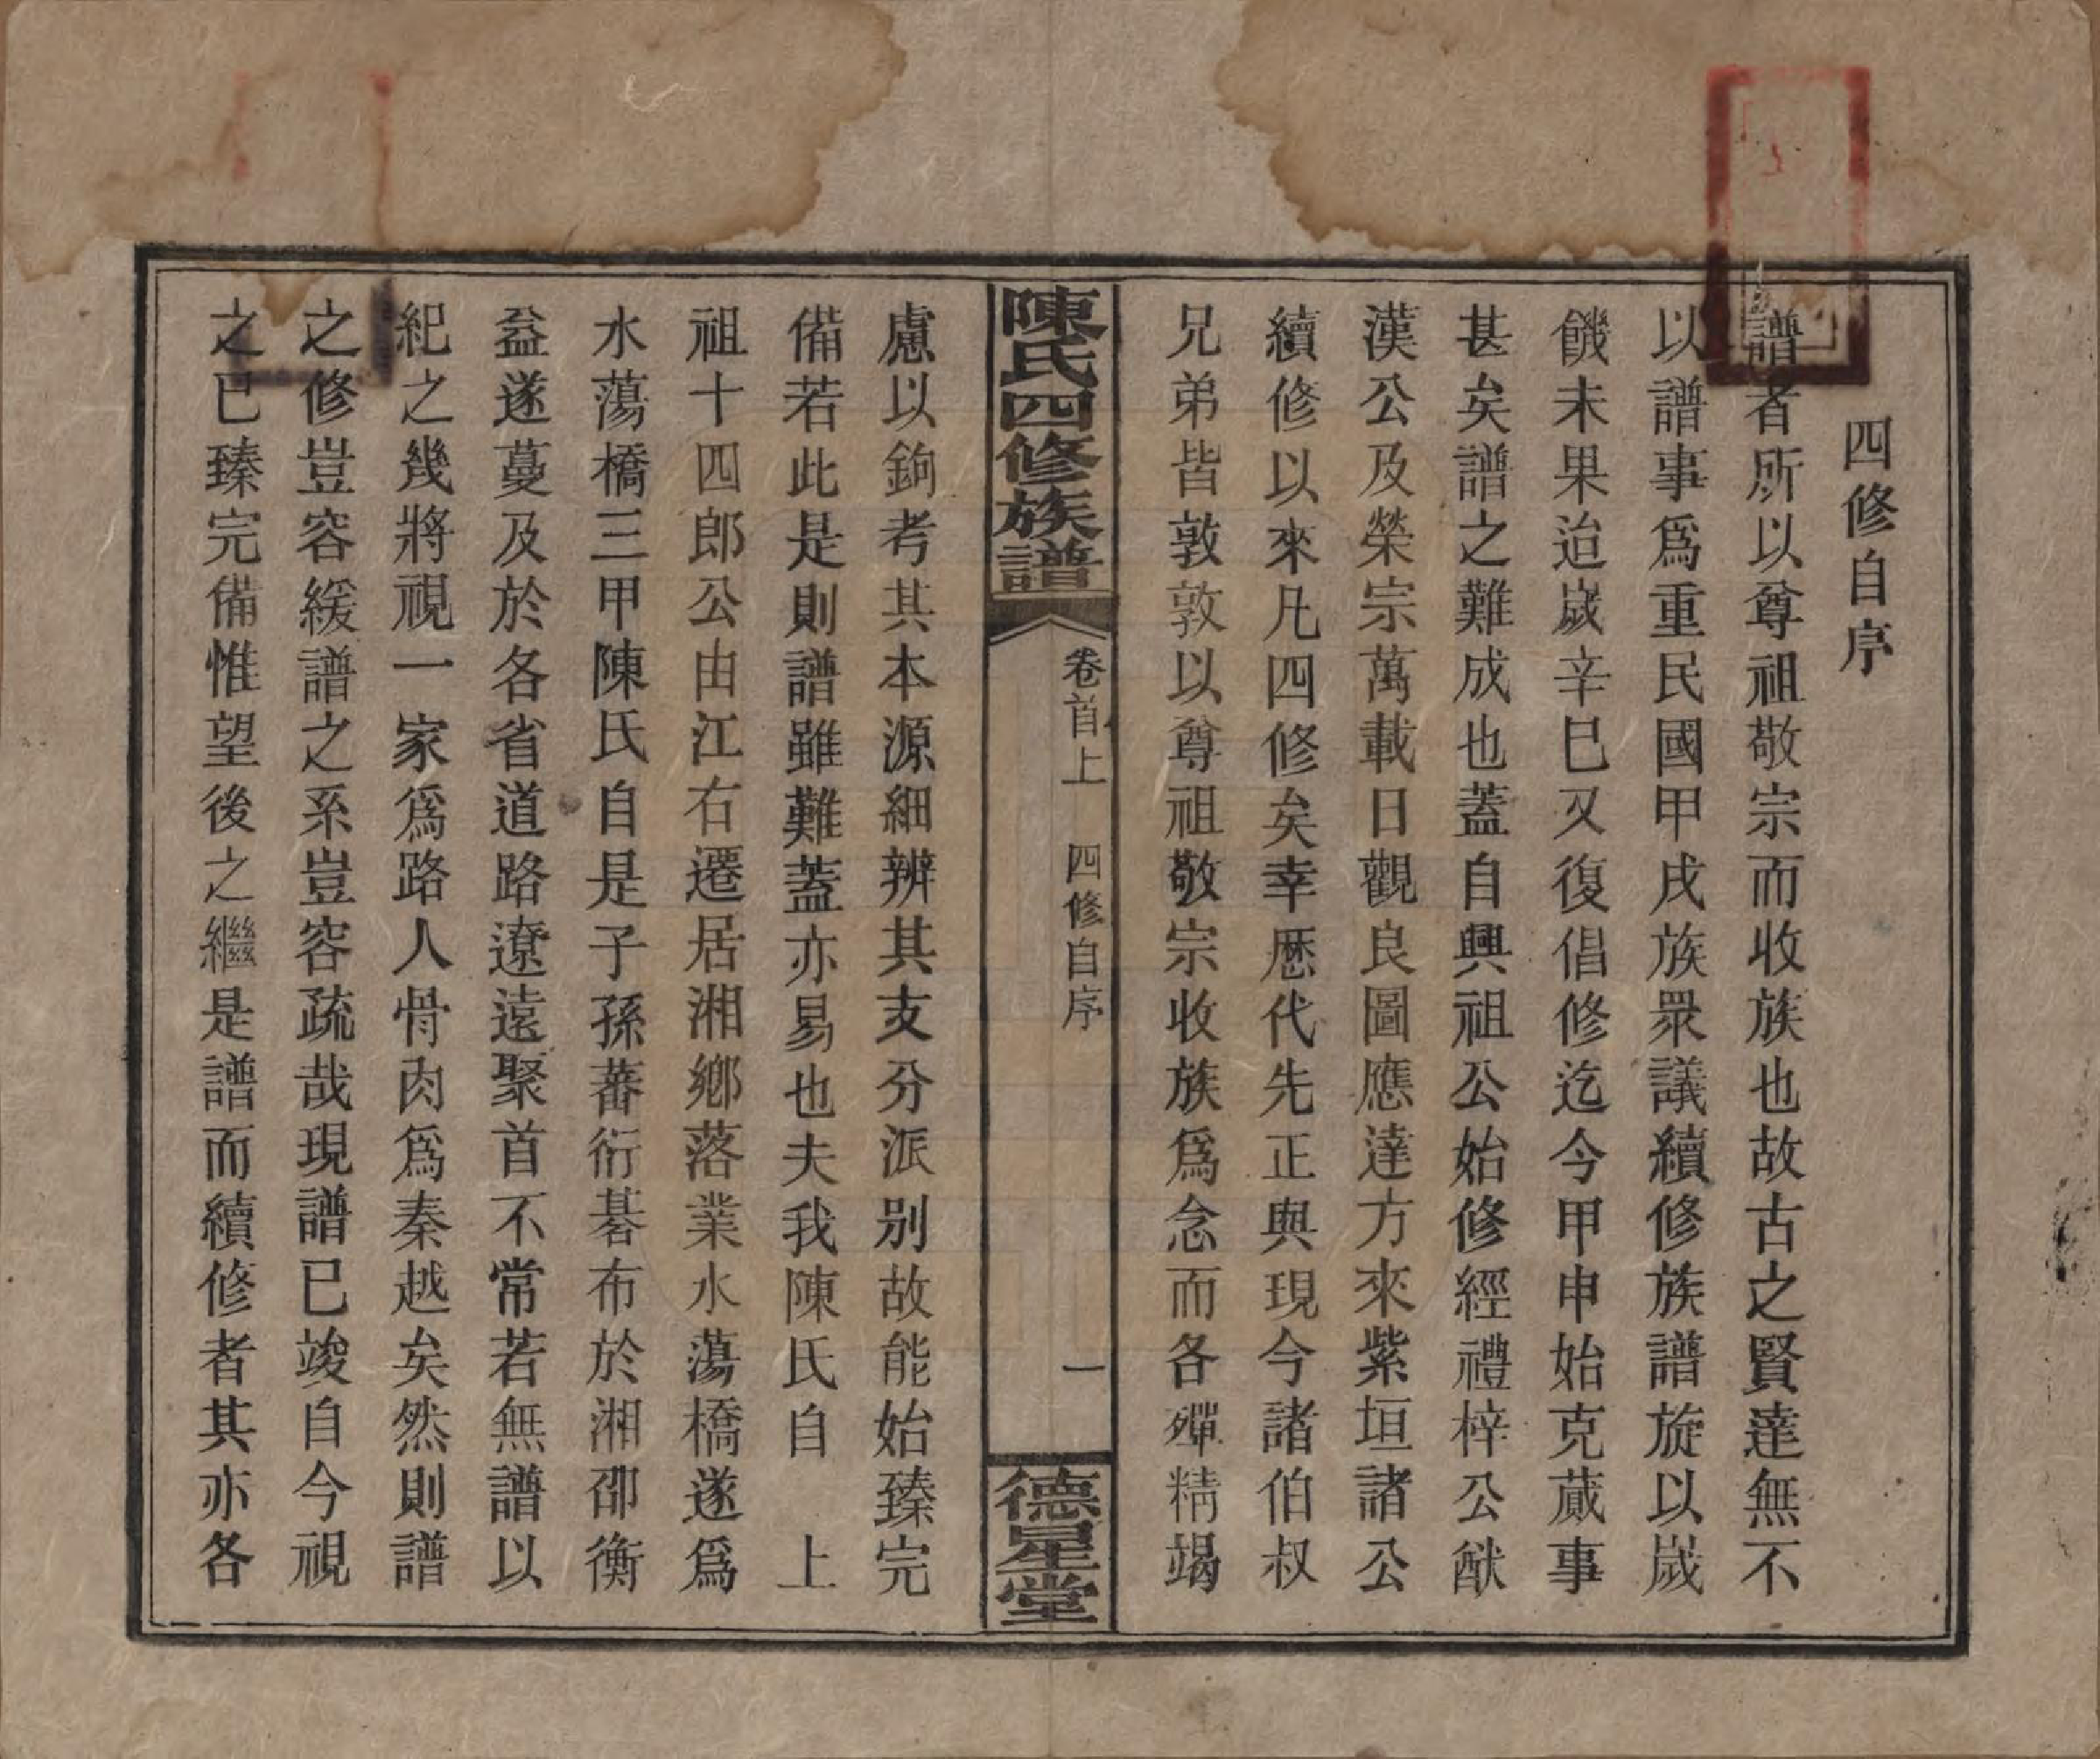 四修自序
譜者所以尊祖敬宗而收族也故古之賢達無不
以譜事爲重民國甲戌族眾議續修族譜旋以嵗
饑未果迨嵗辛巳又復倡修迄今甲申始克蕆事
甚矣譜之難成也蓋自興祖公始修經禮梓公猷
漢公及榮宗萬載日觀良圖應達方來紫垣諸公
續修以來凡四修矣幸歷代先正與現今諸伯叔
兄弟皆敦敦以尊祖敬宗收族爲念而各殫精竭
陳氏四修族譜
卷首上
四修自序
一
德星堂
慮以鉤考其本源細辨其支分派別故能始臻完
備若此是則譜雖難蓋亦易也夫我陳氏自　上
祖十四郎公由江右遷居湘鄉落業水蕩橋遂爲
水蕩橋三甲陳氏自是子孫蕃衍碁布於湘邵衡
益遂蔓及於各省道路遼遠聚首不常若無譜以
紀之幾將視一家爲路人骨肉爲秦越矣然則譜
之修豈容緩譜之系豈容疏哉現譜已竣自今視
之已臻完備惟望後之繼是譜而續修者其亦各